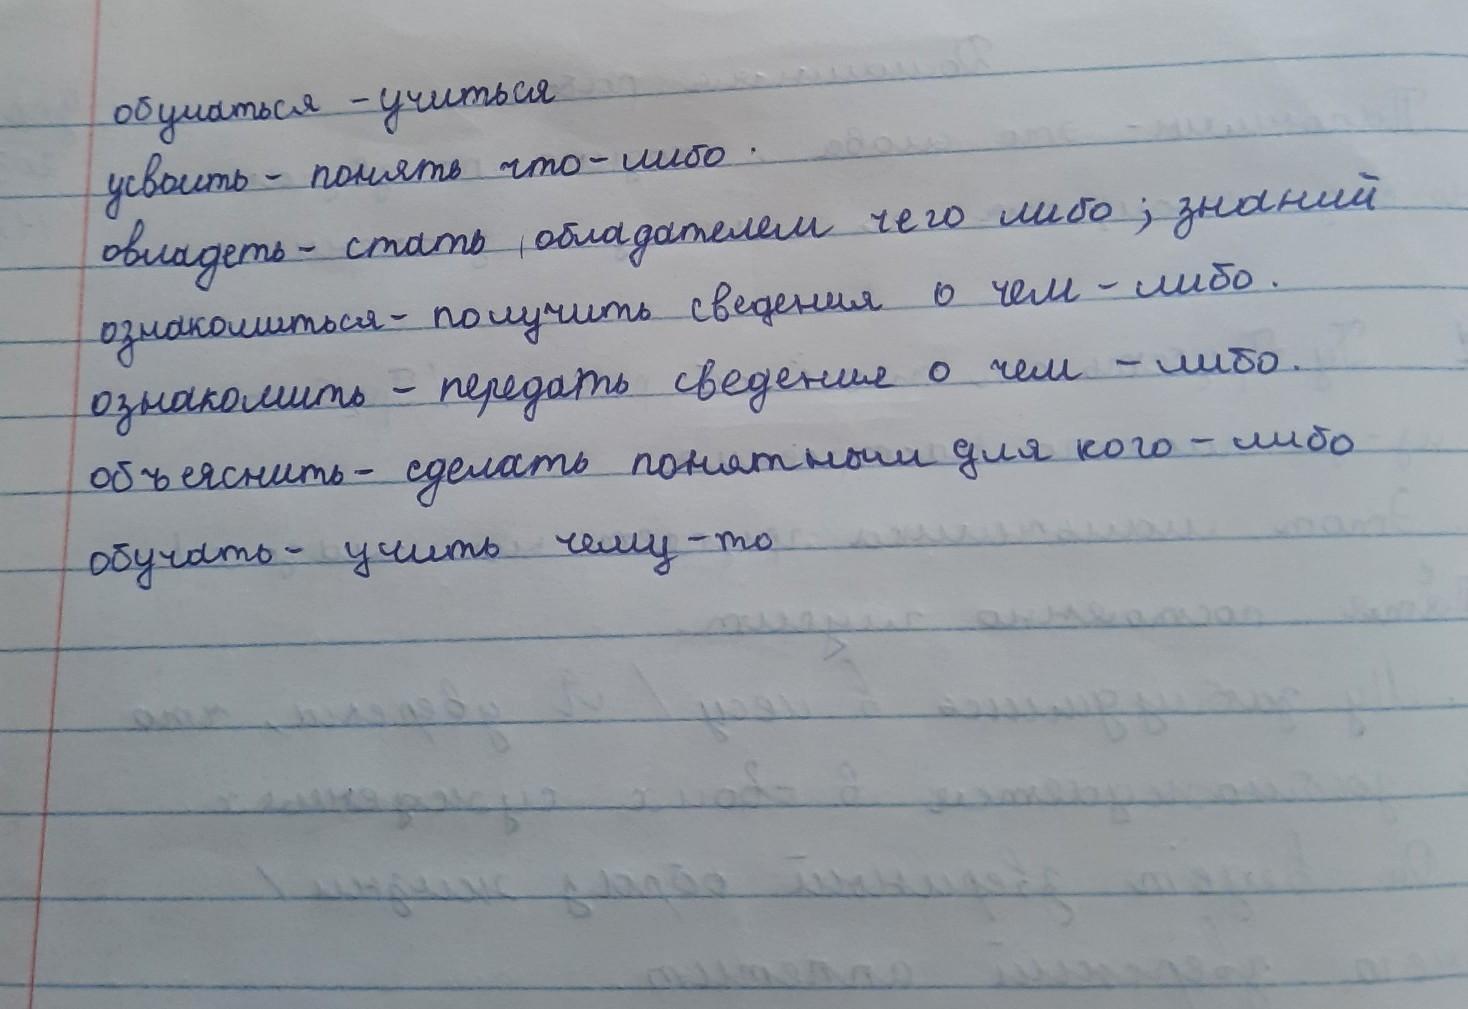 обучаться - учиться
усвоить - понять что-либо.
овладеть - стать обладателем чего либо; знаний
ознакомиться - получить сведения о чем - либо.
ознакомить - передать сведение о чем - либо.
объеяснить - сделать понятным для кого - либо
обучать - учить чему-то